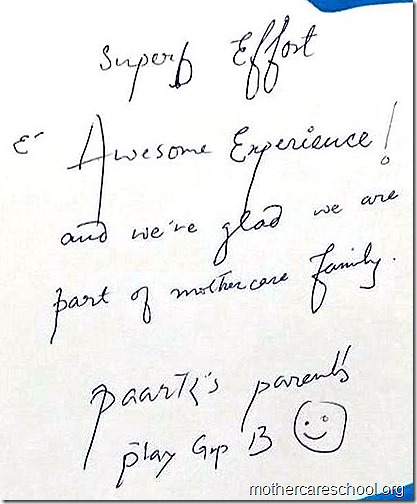 Superb Effort
& Awesome Experience!
and we're glad we are
part of mothercare family.
paarth's parents
play Grp B
mothercareschool.org